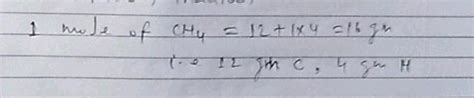 1 mole of CH4 = 12 + 1 x 4 = 16 gm
i.e 12 gm C, 4 gm H